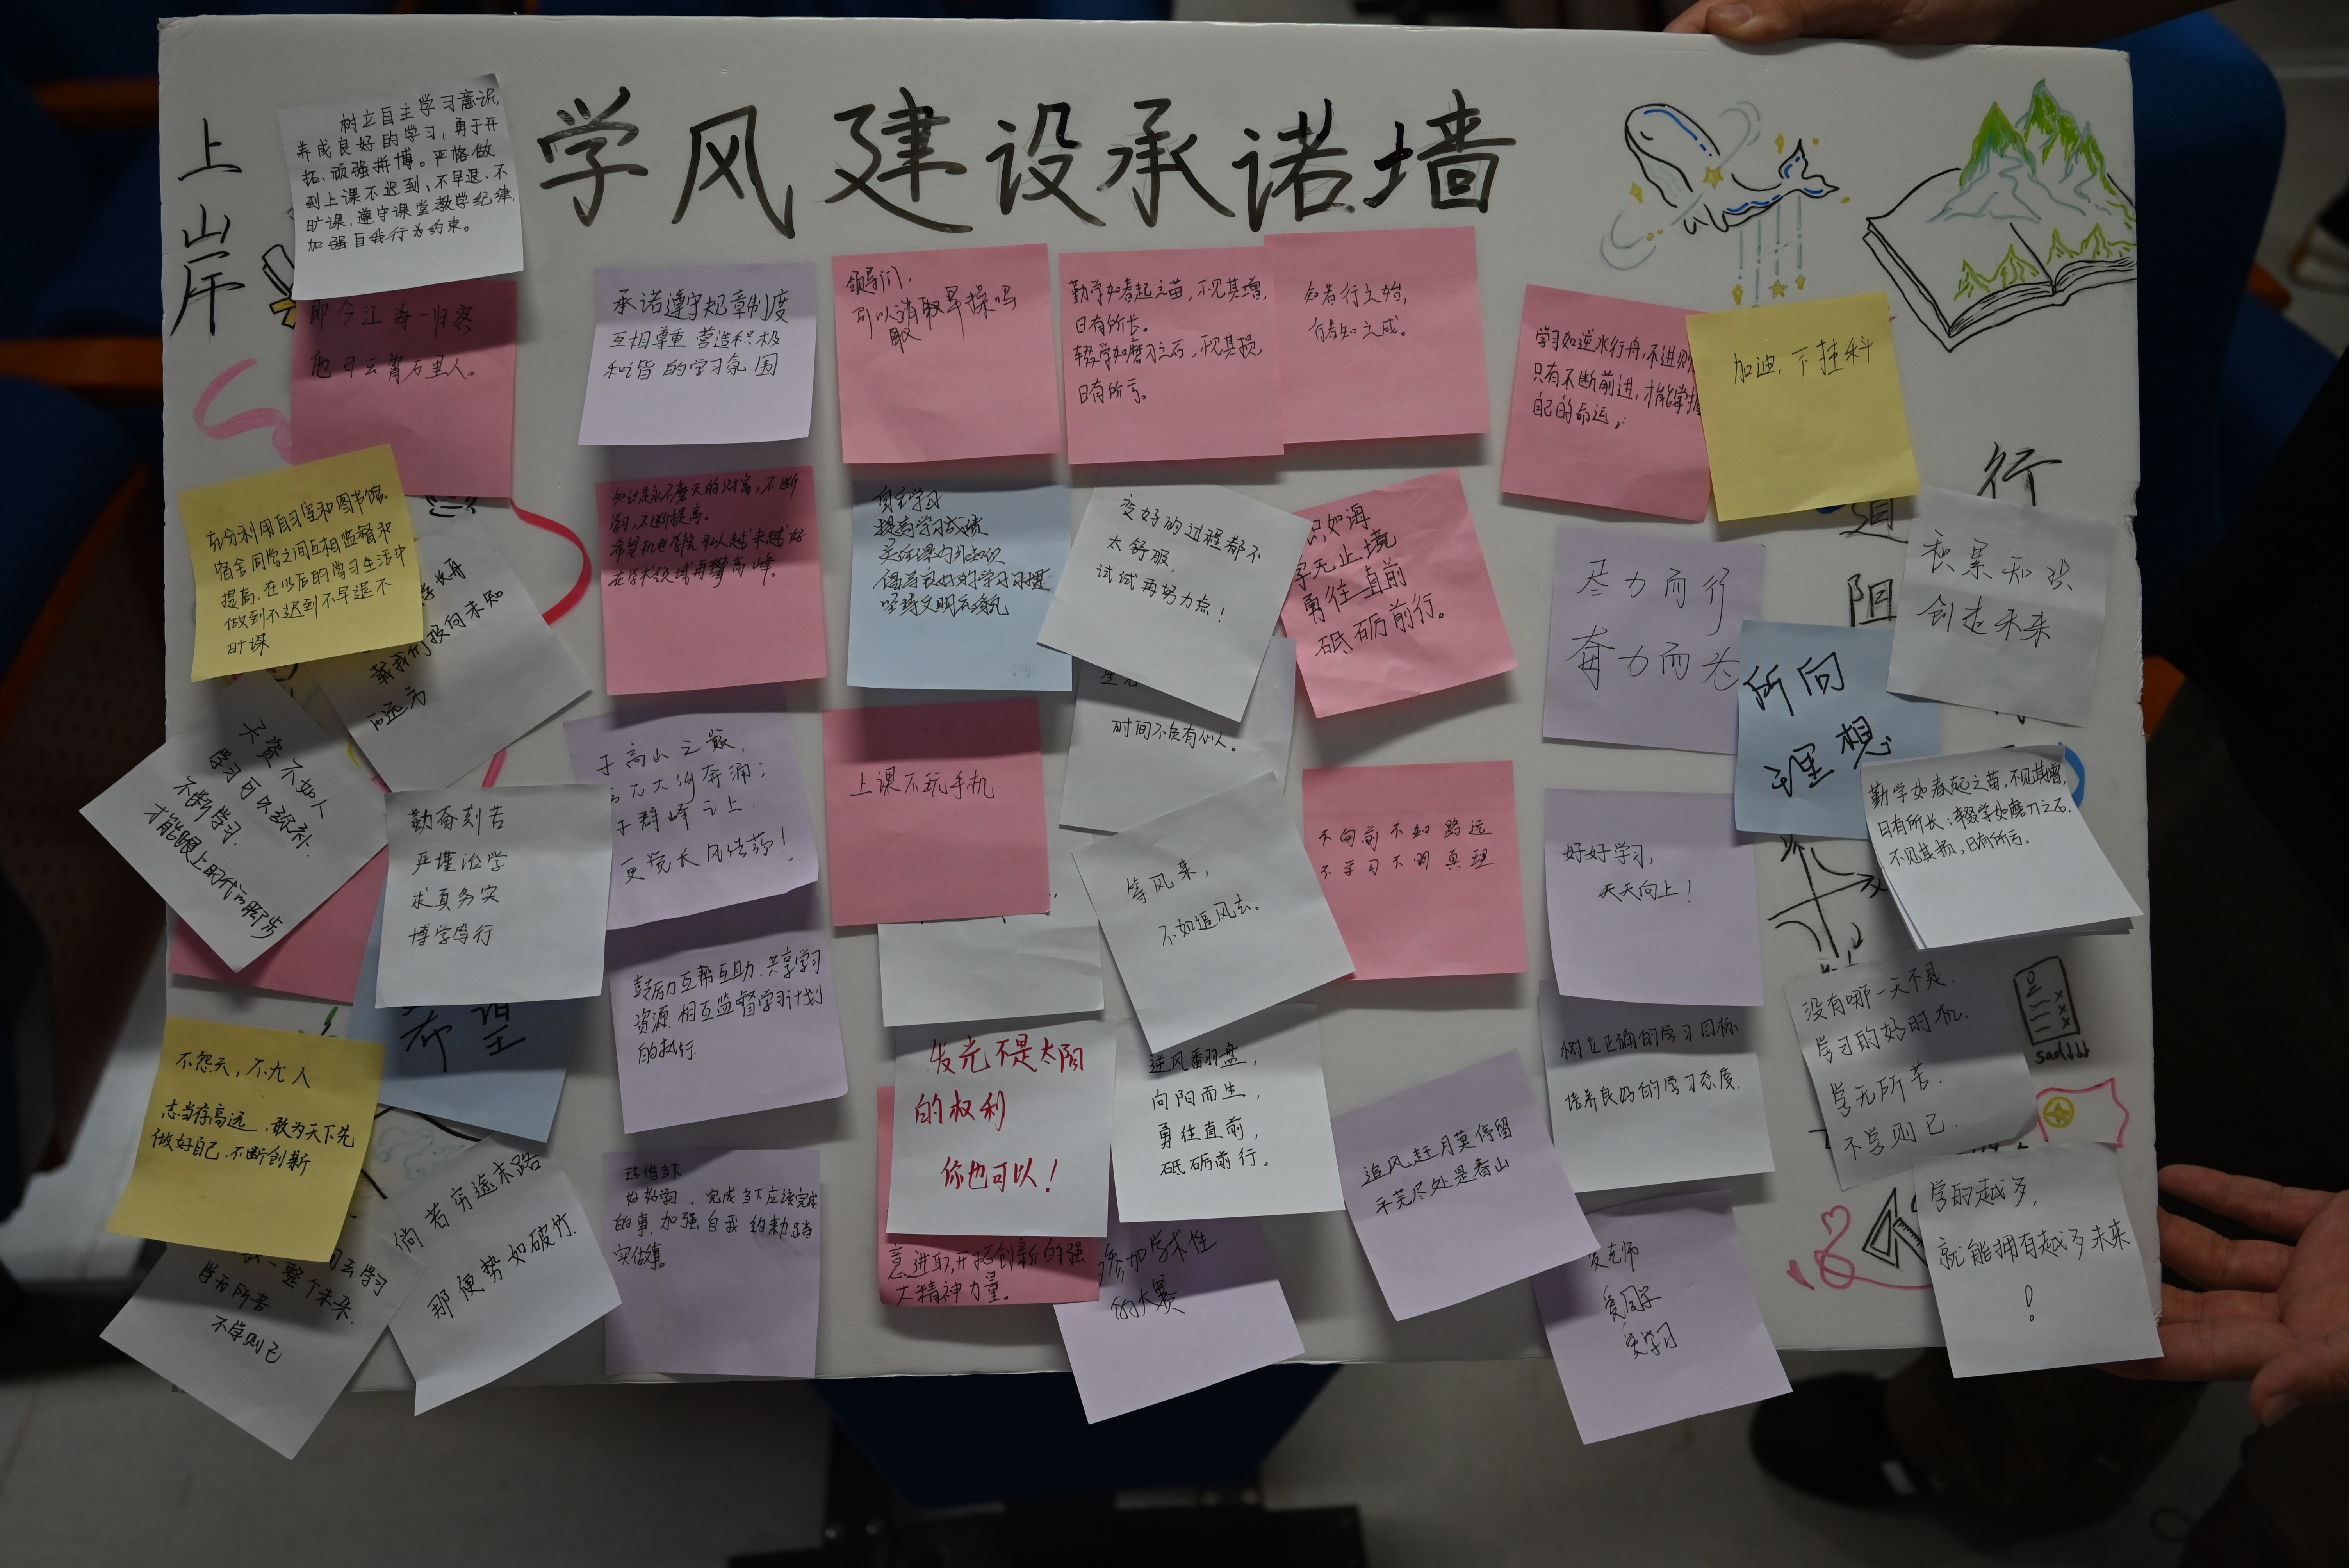 学风建设承诺墙
上
岸
树立自主学习意识,
养成良好的学习,勇于开
拓、顽强拼博。严格做
到上课不迟到,不早退、不
旷课,遵守课堂教学纪律,
加强自我行为约束。
即今江海一归客
他日云霄万里人。
承诺遵守规章制度
互相尊重 营造积极
和谐的学习氛围
领导们,
可以消取早操吗
取
勤学如春起之苗,不见其增,
日有所长。
辍学如磨刀之石,不见其损
日有所亏。
知者行之始,
行者知之成。
学习如逆水行舟,不进则
只有不断前进,才能掌握
自己的命运。
加油,不挂科
行
道
阻
充分利用自习室和图书馆,
宿舍同学之间互相监督和
提高,在以后的学习生活中
做到不迟到不早退不
旷课
载我们投向未知
远方
知识是永不磨灭的财富,不断
学习,不断提高。
希望机电学院可以越来越好
在学术领域再攀高峰。
自主学习
提高学习成绩
倡导良好的学习习惯
坚持文明
变好的过程都不
太舒服,
试试再努力点!
识如海
学无止境
勇往直前
砥砺前行。
尽力而行
奋力而为
积累知识
创造未来
所向
理想
天资不如人
学习可以弥补.
不断学习.
才能跟上时代的脚步
勤奋刻苦
严谨治学
求真务实
博学笃行
于高山之巅,
方见大河奔涌;
于群峰之上.
更觉长风浩荡!
上课不玩手机
时间不负有心人。
等风来,
不如追风去。
不向前不知路远
不学习不明真理
好好学习,
天天向上!
勤学如春起之苗,不见其增,
日有所长;辍学如磨刀之石,
不见其损,日有所亏。
希望
鼓励互帮互助.共享学习
资源.相互监督学习计划
的执行.
不怨天,不尤人
志当存高远,敢为天下先
做好自己.不断创新
发光不是太阳
的权利
你也可以!
逆风翻盘,
向阳而生,
勇往直前,
砥砺前行。
树立正确的学习目标.
培养良好的学习态度.
没有哪一天不是.
学习的好时机.
学无所苦.
不学则已.
sad↓↓↓
倘若穷途末路
那便势如破竹.
去学习
一整个未来.
学而所苦
不学则已
珍惜当下
好好学习.完成当下应该完成
的事.加强自我约束.踏踏
实实做事。
意进取,开拓创新的强
大精神力量。
参加学术性
的大赛
追风赶月莫停留
平芜尽处是春山
爱老师
爱同学
爱学习
学的越多,
就能拥有越多未来
!